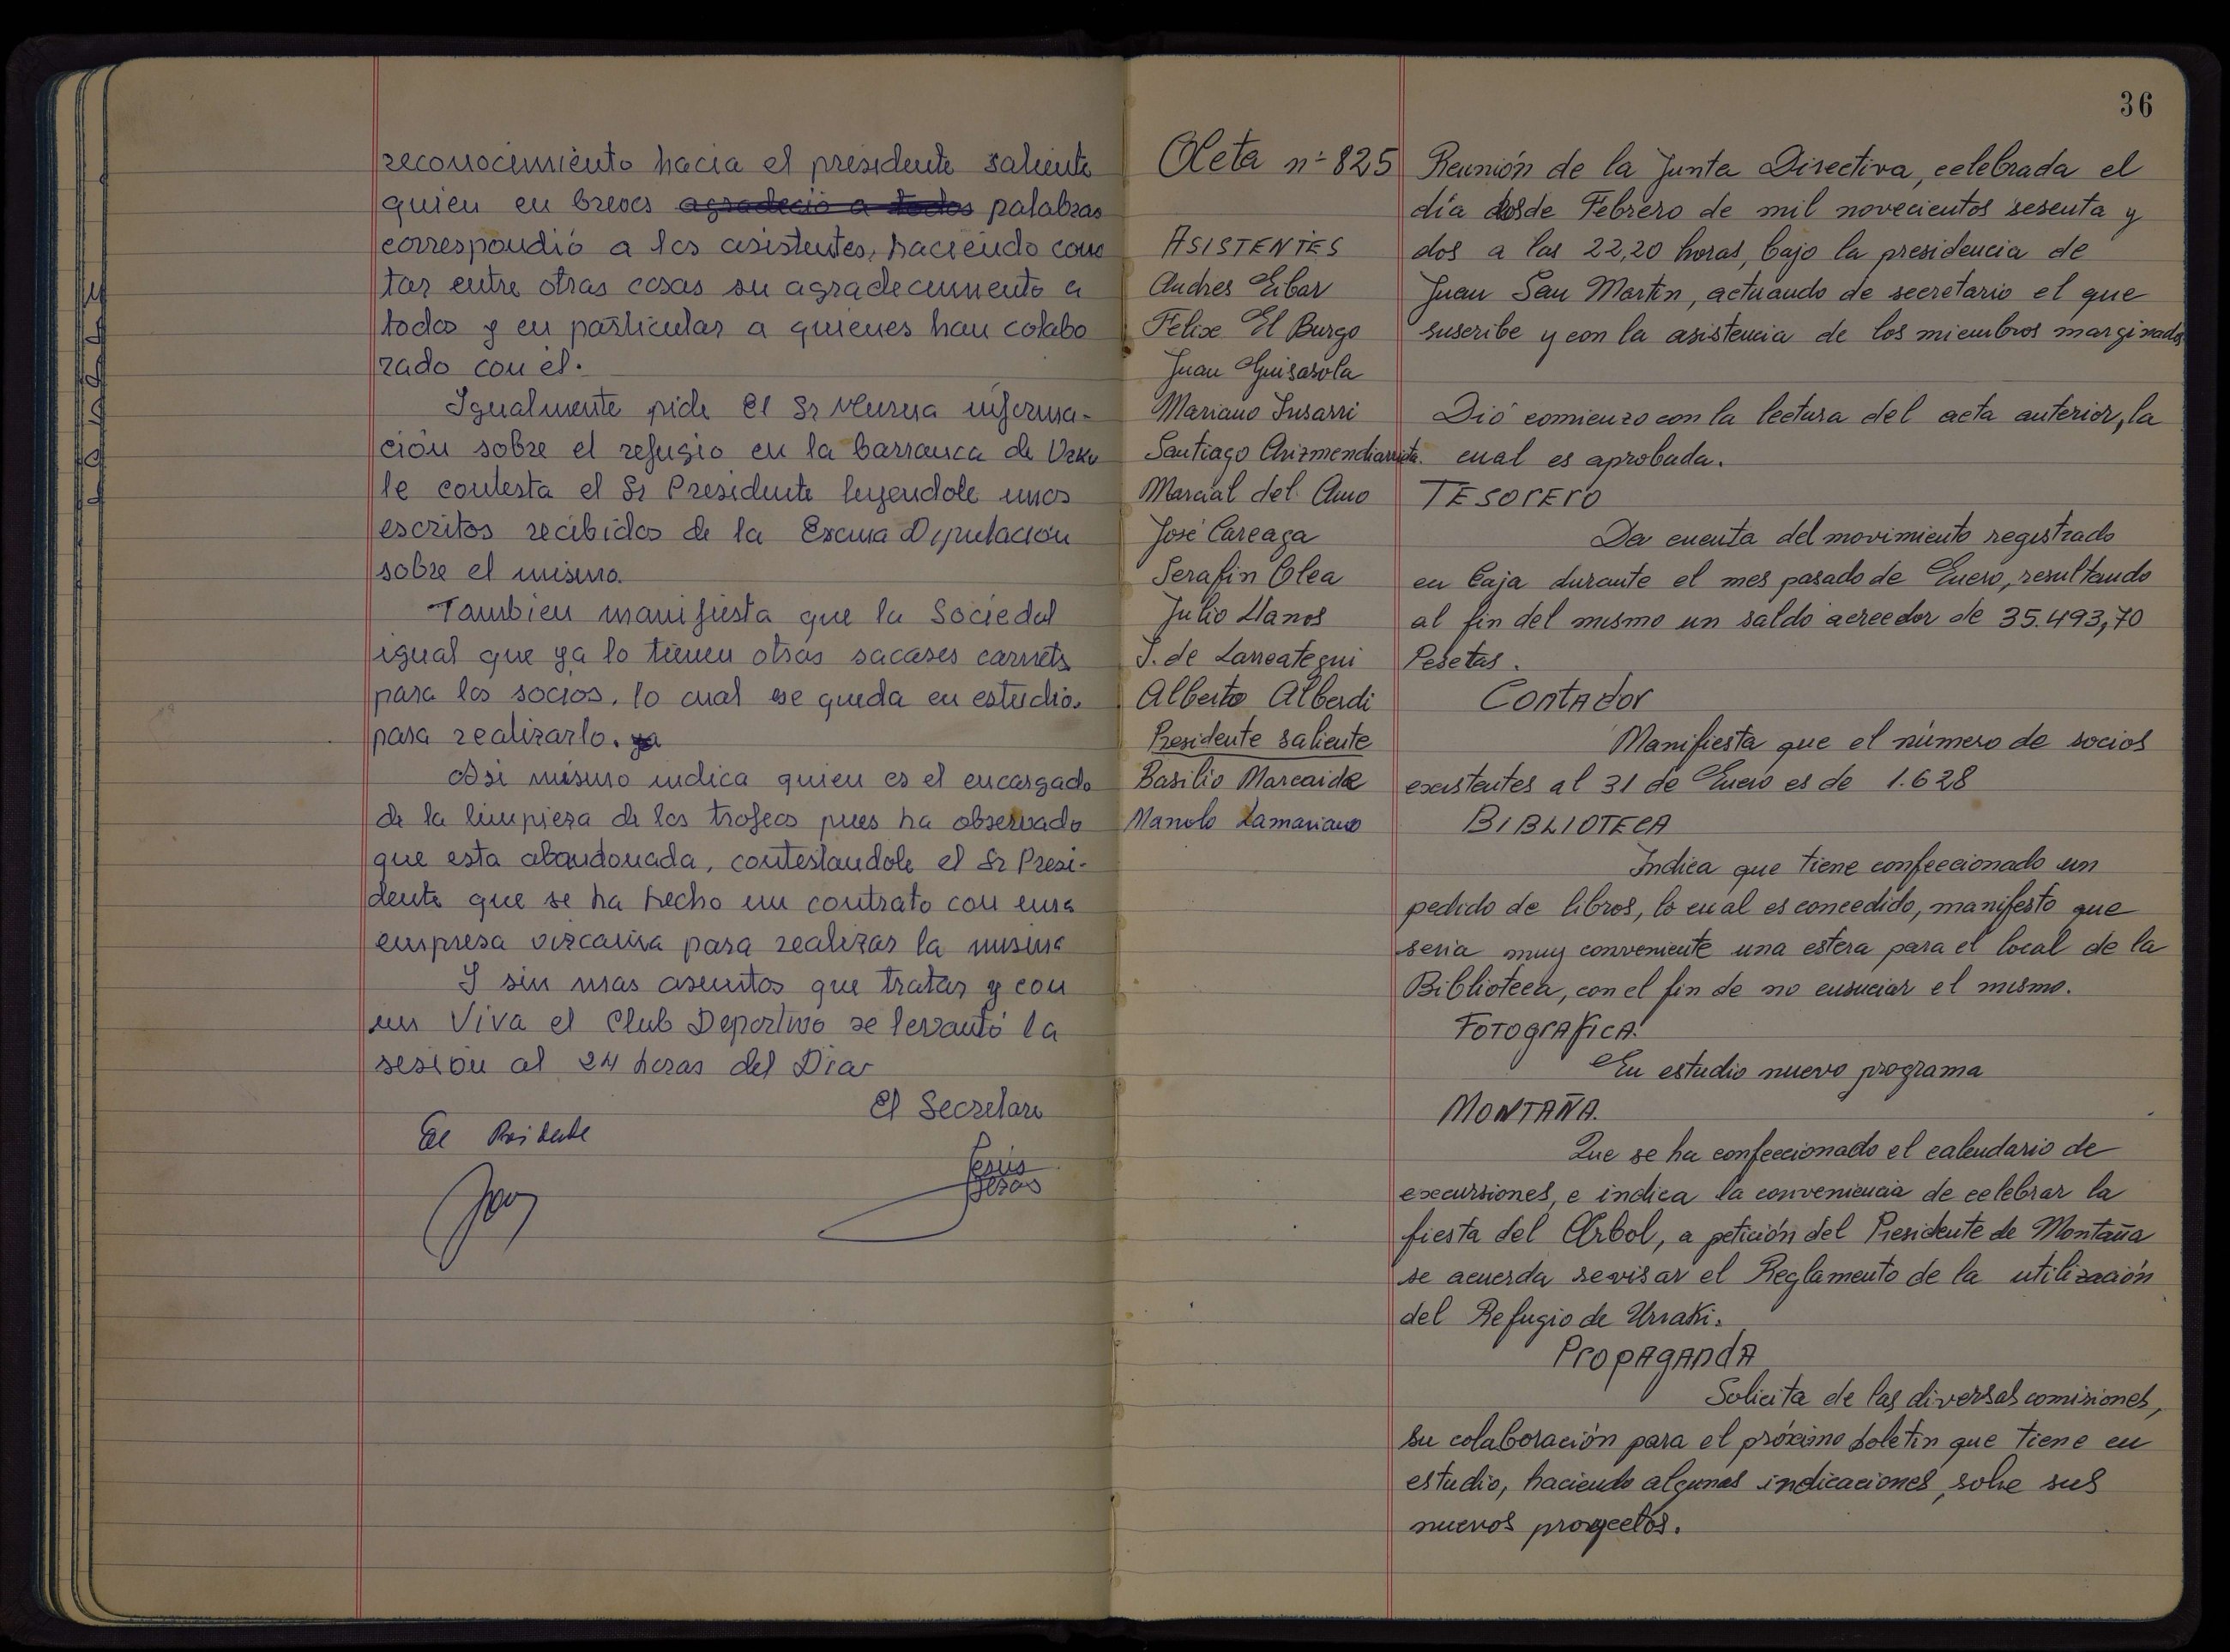 reconocimiento hacia el presidente saliente
quien en breves agradecio a todos palabras
correspondió a los asistentes, haciendo cons
tar entre otras cosas su agradecimiento a
todos y en particular a quienes han colabo
rado con él.
Igualmente pide el Sr informa-
ción sobre el refugio en la barranca de
le contesta el Sr Presidente leyendole unos
escritos recibidos de la Excma Diputación
sobre el mismo.
Tambien manifiesta que la Sociedad
igual que ya lo tienen otras sacases carnets
para los socios. lo cual se queda en estudio.
para realizarlo. ya
Asi mismo indica quien es el encargado
de la limpieza de los trofeos pues ha observado
que esta abandonada, contestandole el Sr Presi-
dente que se ha hecho un contrato con una
empresa vizcaina para realizar la misma
Y sin mas asuntos que tratar y con
un Viva el Club Deportivo se levantó la
sesion al 24 horas del Dia
El Secretario
El Presidente
36
Acta nº 825
ASISTENTES
Andres Eibar
Felixe El Burgo
Juan Guisasola
Mariano Susarri
Santiago Arizmendiarrieta.
Marcial del Amo
José Careaga
Serafin Olea
Julio Llanos
J. de Larreategui
Alberto Alberdi
Presidente saliente
Basilio Marcaide
Manolo Lamariano
Reunión de la Junta Directiva, celebrada el
día dos de Febrero de mil novecientos sesenta y
dos a las 22,20 horas, bajo la presidencia de
Juan San Martin, actuando de secretario el que
suscribe y con la asistencia de los miembros marginados
Dió comienzo con la lectura del acta anterior, la
cual es aprobada.
TESORERO
Da cuenta del movimiento registrado
en Caja durante el mes pasado de Enero, resultando
al fin del mismo un saldo acreedor de 35.493,70
Pesetas.
CONTADOR
Manifiesta que el número de socios
existentes al 31 de Enero es de 1.628
BIBLIOTECA
Indica que tiene confeccionado un
pedido de libros, lo cual es concedido, manifesto que
seria muy conveniente una estera para el local de la
Biblioteca, con el fin de no ensuciar el mismo.
FOTOGRAFICA.
En estudio nuevo programa
MONTAÑA.
Que se ha confeccionado el calendario de
excursiones, e indica la conveniencia de celebrar la
fiesta del Arbol, a petición del Presidente de Montaña
se acuerda revisar el Reglamento de la utilización
del Refugio de Urraki.
PROPAGANDA
Solicita de las diversas comisiones,
su colaboración para el próximo boletin que tiene en
estudio, haciendo algunas indicaciones, sobre sus
nuevos proyectos.